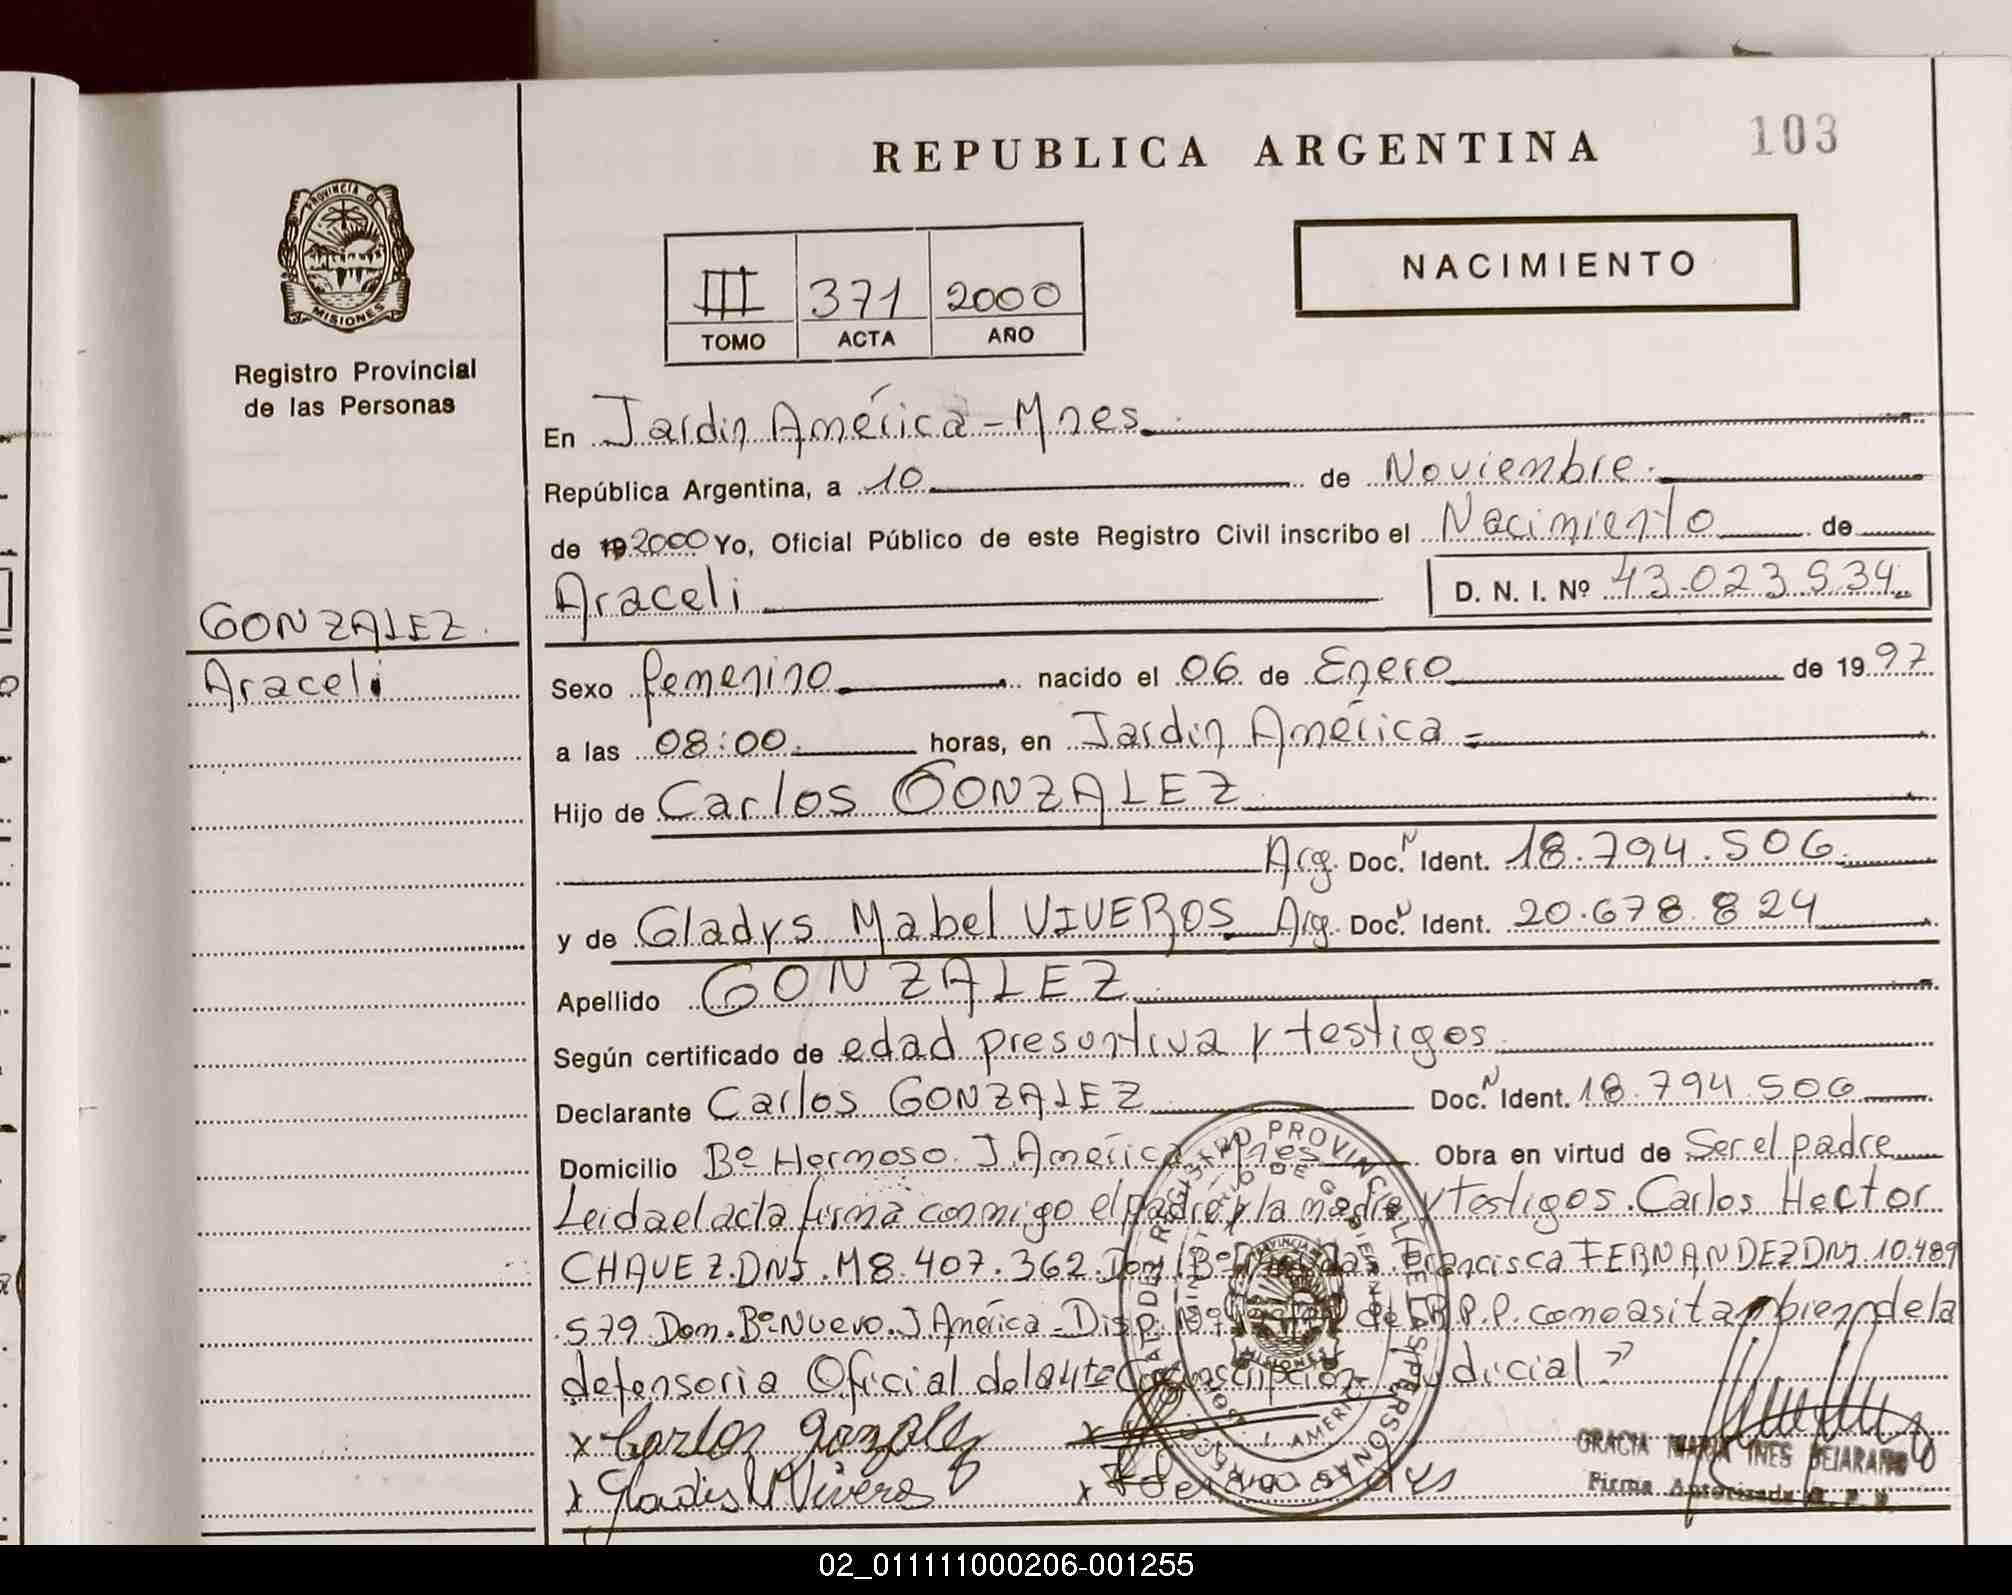 REPUBLICA ARGENTINA
103
PROVINCIA DE
MISIONES
Registro Provincial
de las Personas
III 371 2000
TOMO ACTA AÑO
NACIMIENTO
En Jardin América - Mnes.
República Argentina, a 10 de Noviembre.
de 192000 Yo, Oficial Público de este Registro Civil inscribo el Nacimiento de
Araceli D. N. I. Nº 43.023.534
GONZALEZ.
Araceli
Sexo femenino nacido el 06 de Enero de 1997
a las 08:00. horas, en Jardin América =
Hijo de Carlos GONZALEZ
Arg. Doc. N Ident. 18.794.506
y de Gladys Mabel VIVEROS Arg. Doc. N Ident. 20.678.824
Apellido GONZALEZ
Según certificado de edad presuntiva y testigos
Declarante Carlos GONZALEZ Doc. N Ident. 18.794.506
Domicilio Bº Hermoso. J. América Mnes Obra en virtud de Ser el padre
Leida el acta firma conmigo el padre y la madre y Testigos. Carlos Hector
CHAVEZ. DNI. M8.407.362. Dom. Bº Francisca FERNANDEZ DNI. 10.489
.579 Dom. Bº Nuevo. J. América - Disp. del R.P.P. como asi tambien de la
defensoria Oficial de la 4ta Circunscripcion Judicial "
x Carlos Gonzalez x
x Gladis Viveros x
REGISTRO PROVINCIAL DE LAS PERSONAS
GRACIA MARIA INES BEJARANO
Firma Autorizada R. P. P.
02_011111000206-001255